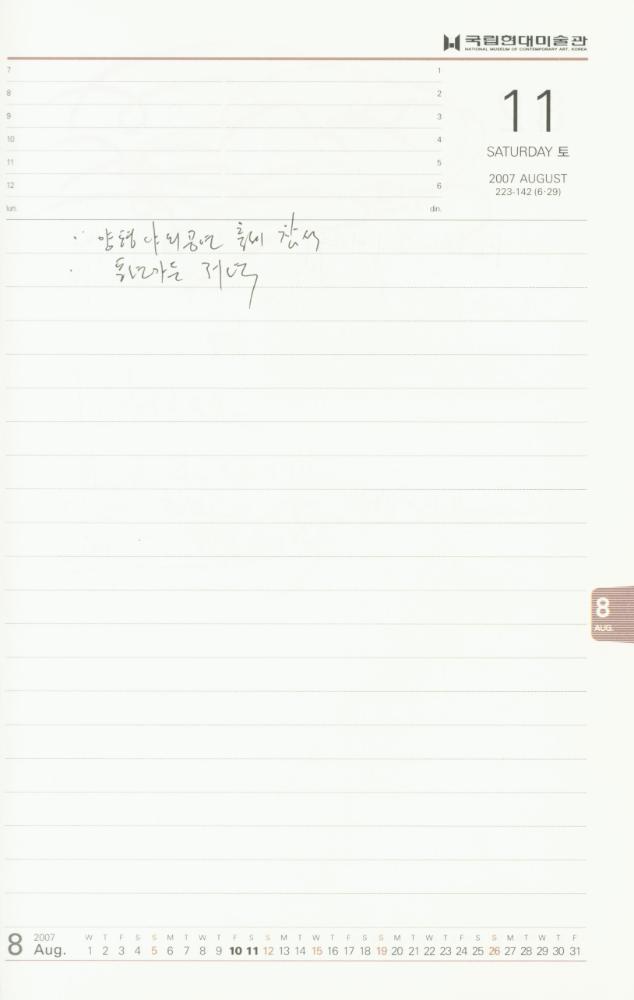 국립현대미술관
NATIONAL MUSEUM OF CONTEMPORARY ART, KOREA
7 1
8 2
9 3
10 4
11 5
12 6
lun. din.
11
SATURDAY 토
2007 AUGUST
223-142 (6·29)
· 양평 야외공연 참석
· 저녁
8
AUG.
8 2007 Aug.
W T F S S M T W T F S S M T W T F S S M T W T F S S M T W T F
1 2 3 4 5 6 7 8 9 10 11 12 13 14 15 16 17 18 19 20 21 22 23 24 25 26 27 28 29 30 31